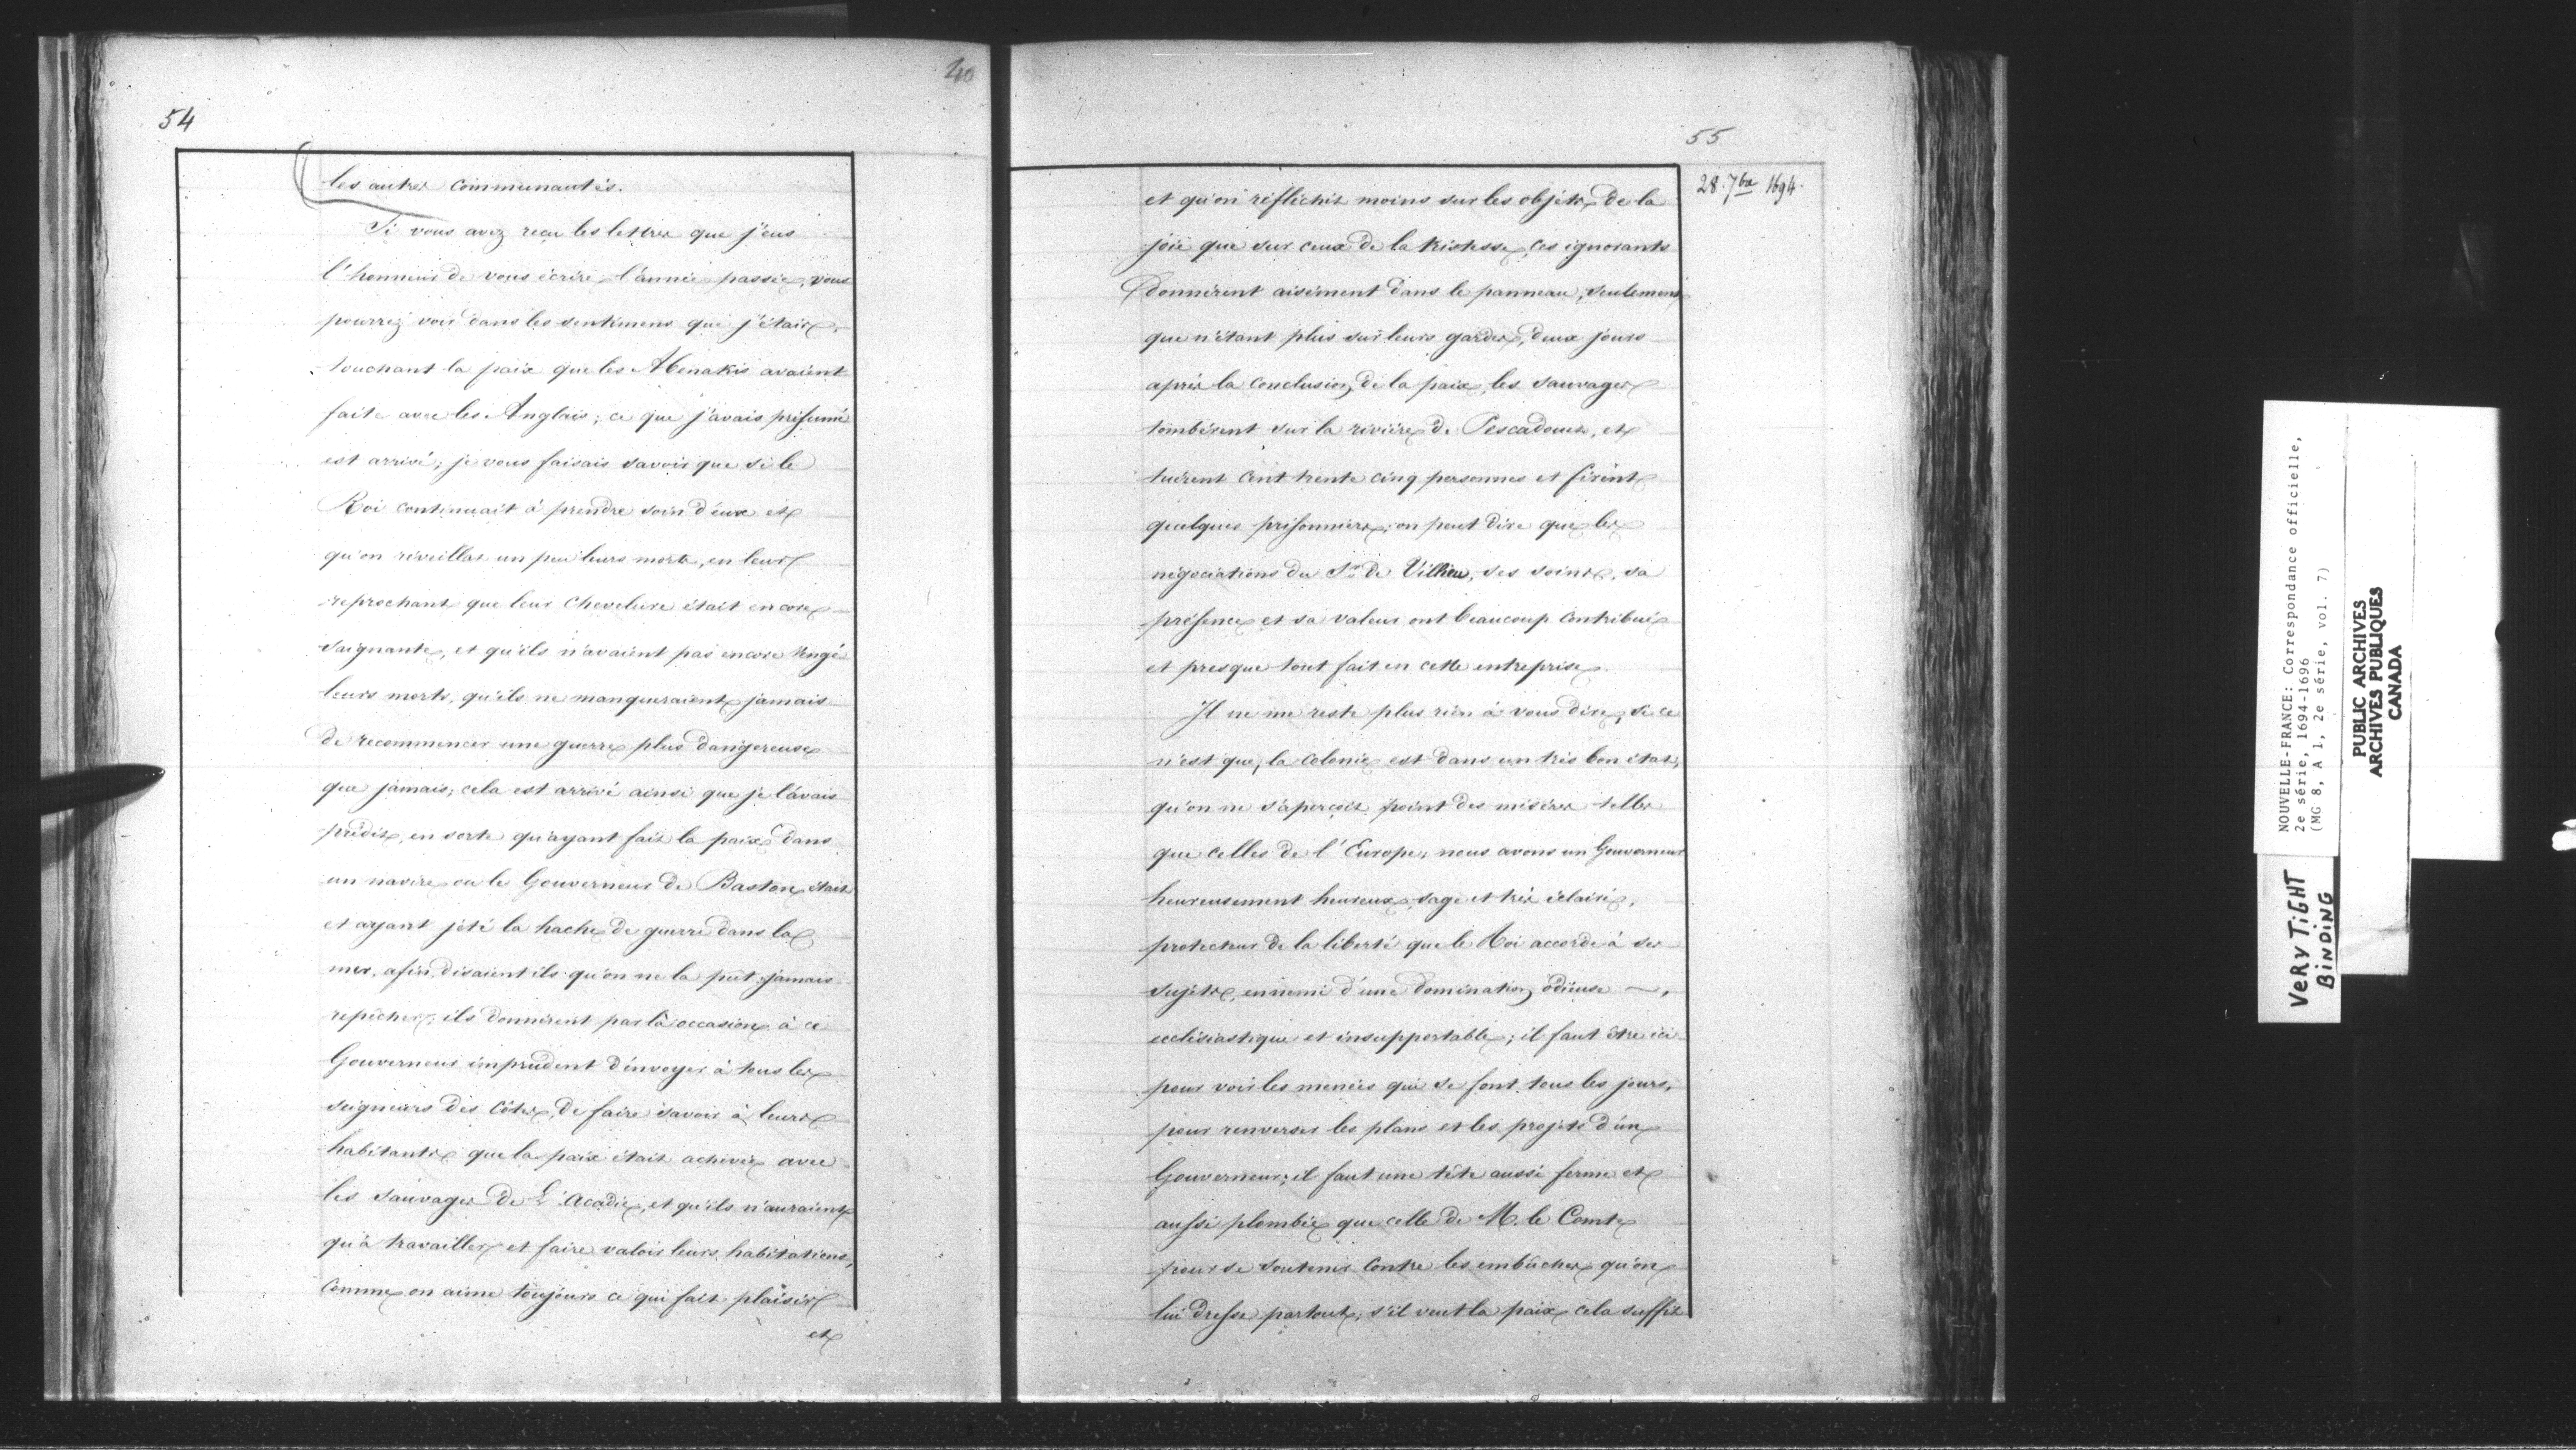 40
54
les autres communautés.
Si vous avez reçu les lettres que j'eus
l'honneur de vous écrire l'année passée, vous
pourrez voir dans les sentimens que j'étais,
touchant la paix que les Abenakis avaient
faite avec les Anglais; ce que j'avais présumé
est arrivé; je vous faisais savoir que si le
Roi continuait à prendre soin d'eux et
qu'on réveillat un peu leurs morts, en leur
reprochant que leur chevelure était encore
saignante, et qu'ils n'avaient pas encore vengé
leurs morts, qu'ils ne manqueraient jamais
de recommencer une guerre plus dangereuse
que jamais; cela est arrivé ainsi que je l'avais
prédit, en sorte qu'ayant fait la paix dans
un navire ou le Gouverneur de Baston était
et ayant jété la hache de guerre dans la
mer, afin, disaient ils qu'on ne la put jamais
repêcher; ils donnèrent par là occasion à ce
Gouverneur imprudent d'envoyer à tous les
seigneurs des côtes, de faire savoir à leurs
habitants que la paix était achevée avec
les sauvages de L'Acadie, et qu'ils n'auraient
qu'à travailler et faire valoir leurs habitations,
comme on aime toujours ce qui fait plaisir
et
55
28. 7bre 1694.
et qu'on réfléchit moins sur les objets de la
joie que sur ceux de la tristesse, ces ignorants
donnèrent aisément dans le panneau, seulement
que n'étant plus sur leurs gardes, deux jours
après la conclusion de la paix, les sauvages
tombèrent sur la rivière de Pescadouet, et
tuèrent cent trente cinq personnes et firent
quelques prisonniers; on peut dire que les
négociations du Sr. de Villieu, ses soins, sa
présence et sa valeur ont beaucoup contribué
et presque tout fait en cette entreprise.
Il ne me reste plus rien à vous dire, si ce
n'est que, la colonie est dans un très bon état,
qu'on ne s'aperçoit point des misères telles
que celles de l'Europe; nous avons un Gouverneur
heureusement heureux, sage et très éclairé,
protecteur de la liberté que le Roi accorde à ses
sujets, ennemi d'une domination odieuse —,
ecclésiastique et insupportable; il faut être ici
pour voir les menées qui se font tous les jours,
pour renverser les plans et les projets d'un
Gouverneur; il faut une tête aussi ferme et
aussi plombée que celle de M. le Comte
pour se soutenir contre les embûches qu'on
lui dresse partout; s'il veut la paix cela suffit
NOUVELLE-FRANCE: Correspondance officielle,
2e série, 1694-1696
(MG 8, A 1, 2e série, vol. 7)
PUBLIC ARCHIVES
ARCHIVES PUBLIQUES
CANADA
VERY TIGHT
BINDING